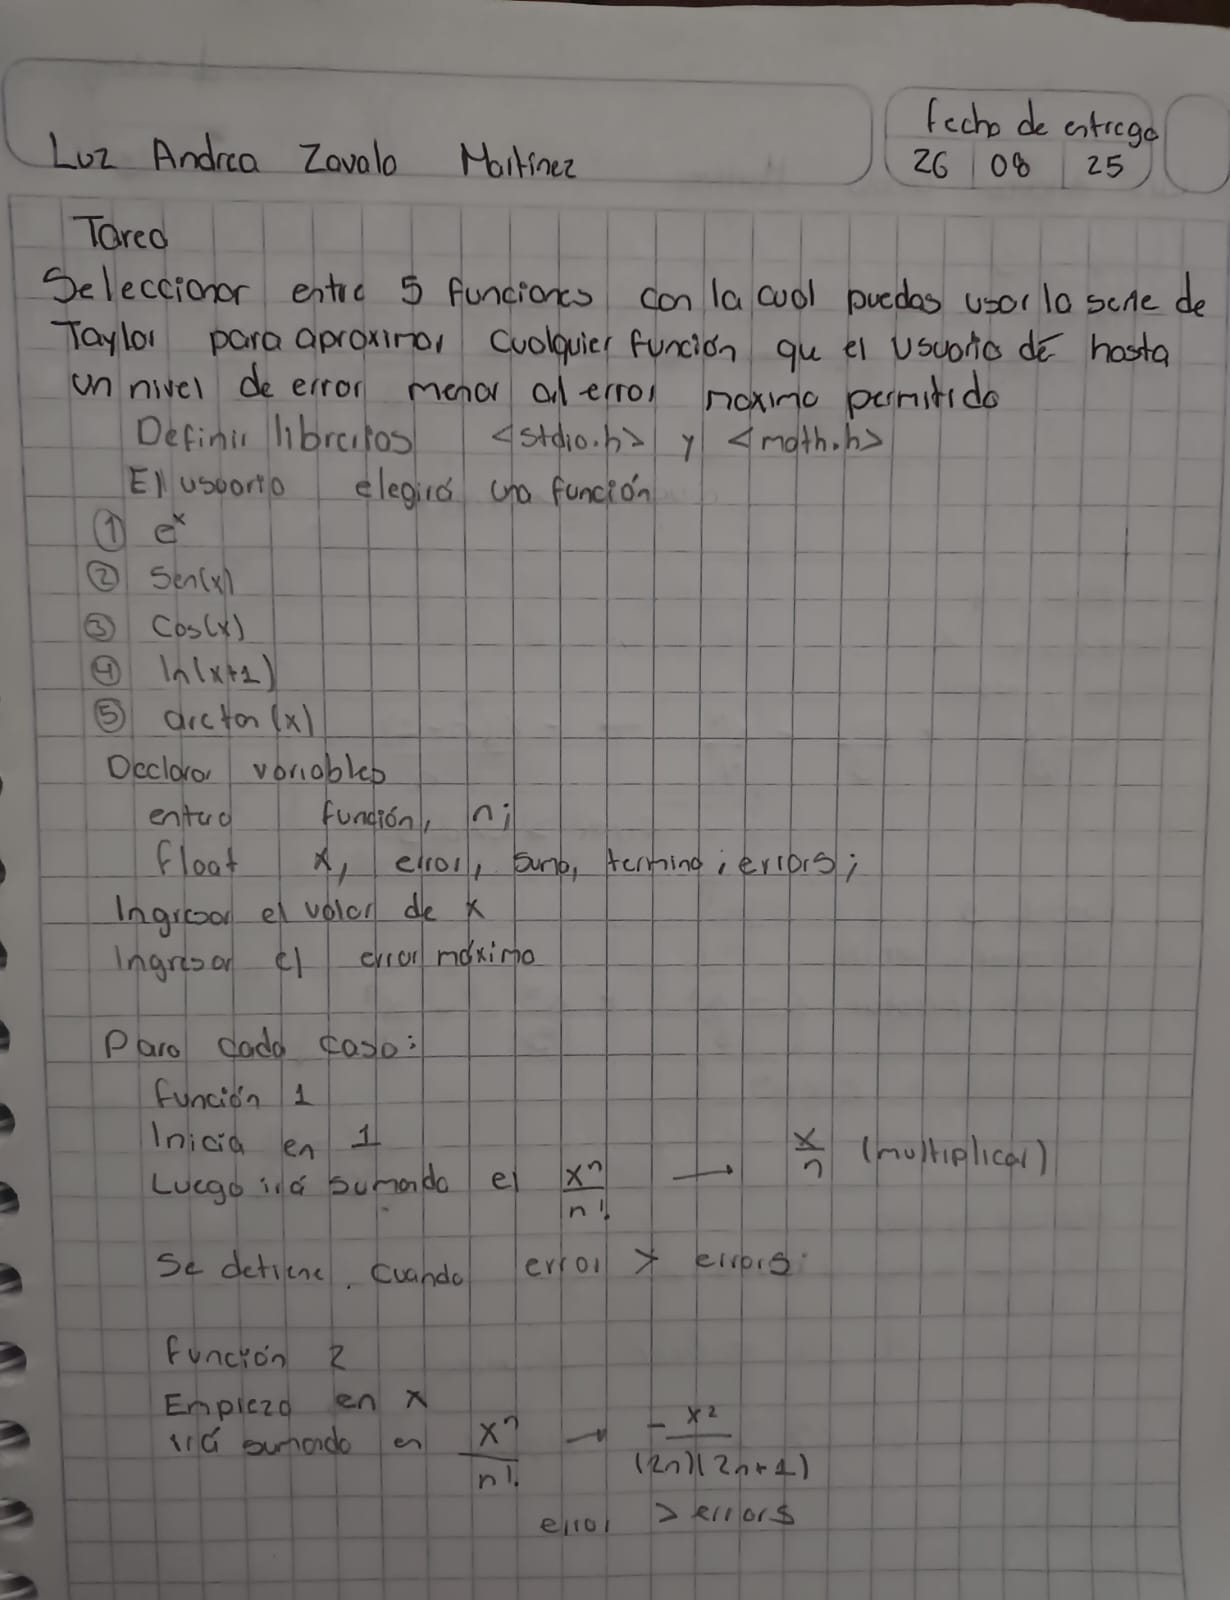 fecha de entrega
Luz Andrea Zavala Martinez
26 | 08 | 25
Tarea
Seleccionar entre 5 funciones con la cual puedas usar la serie de
Taylor para aproximar cualquier función qu el usuario dé hasta
un nivel de error menor al error maximo permitido
Definir librerías <stdio.h> y <math.h>
El usuario elegirá una función
① e^x
② Sen(x)
③ Cos(x)
④ ln(x+1)
⑤ arctan(x)
Declarar variables
entero función, n;
float x, error, suma, termino, errors;
Ingresar el valor de x
Ingresar el error máximo
Para cada caso:
función 1
Inicia en 1
Luego irá sumando el x^n/n! → x/n (multiplicar)
Se detiene cuando error > errors
función 2
Empieza en x
irá sumando en x^n/n! → -x^2/(2n)(2n+1)
error > errors